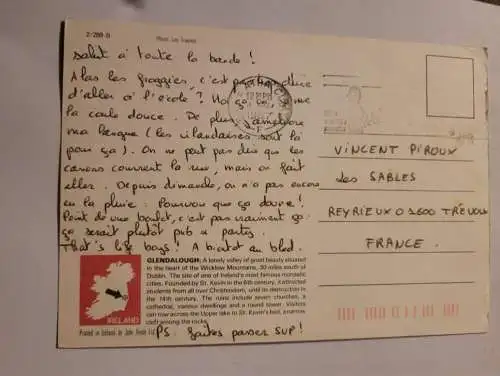 2/288 D
Salut à toute la bande !
A las les froggies c'est pas trop dure
d'aller à l'école ? Moi ça va, je me
la coule douce. De plus j'améliore
ma langue (les irlandaises sont là
pour ça). On ne peut pas dire que les
canons courent la rue, mais on fait
aller. Depuis dimanche, on n'a pas encore
eu la pluie : Pourvou que ça dure !
Point de vue boulot, c'est pas vraiment ça
ça serait plutôt pub & partys.
That's life boys ! A bientôt au bled.
VINCENT PIROUX
Les SABLES
REYRIEUX 01600 TRÉVOUX
FRANCE.
GLENDALOUGH: A lonely valley of great beauty situated
in the heart of the Wicklow Mountains, 30 miles south of
Dublin. The site of one of Ireland's most famous monastic
cities. Founded by St. Kevin in the 6th century, it attracted
students from all over Christendom, until its destruction in
the 14th century. The ruins include seven churches, a
cathedral, various dwellings and a round tower. Visitors
can row across the Upper lake to St. Kevin's bed, a narrow
cleft among the rocks.
IRELAND
Printed in Ireland by John Hinde Ltd.
PS: faites passer SUP !